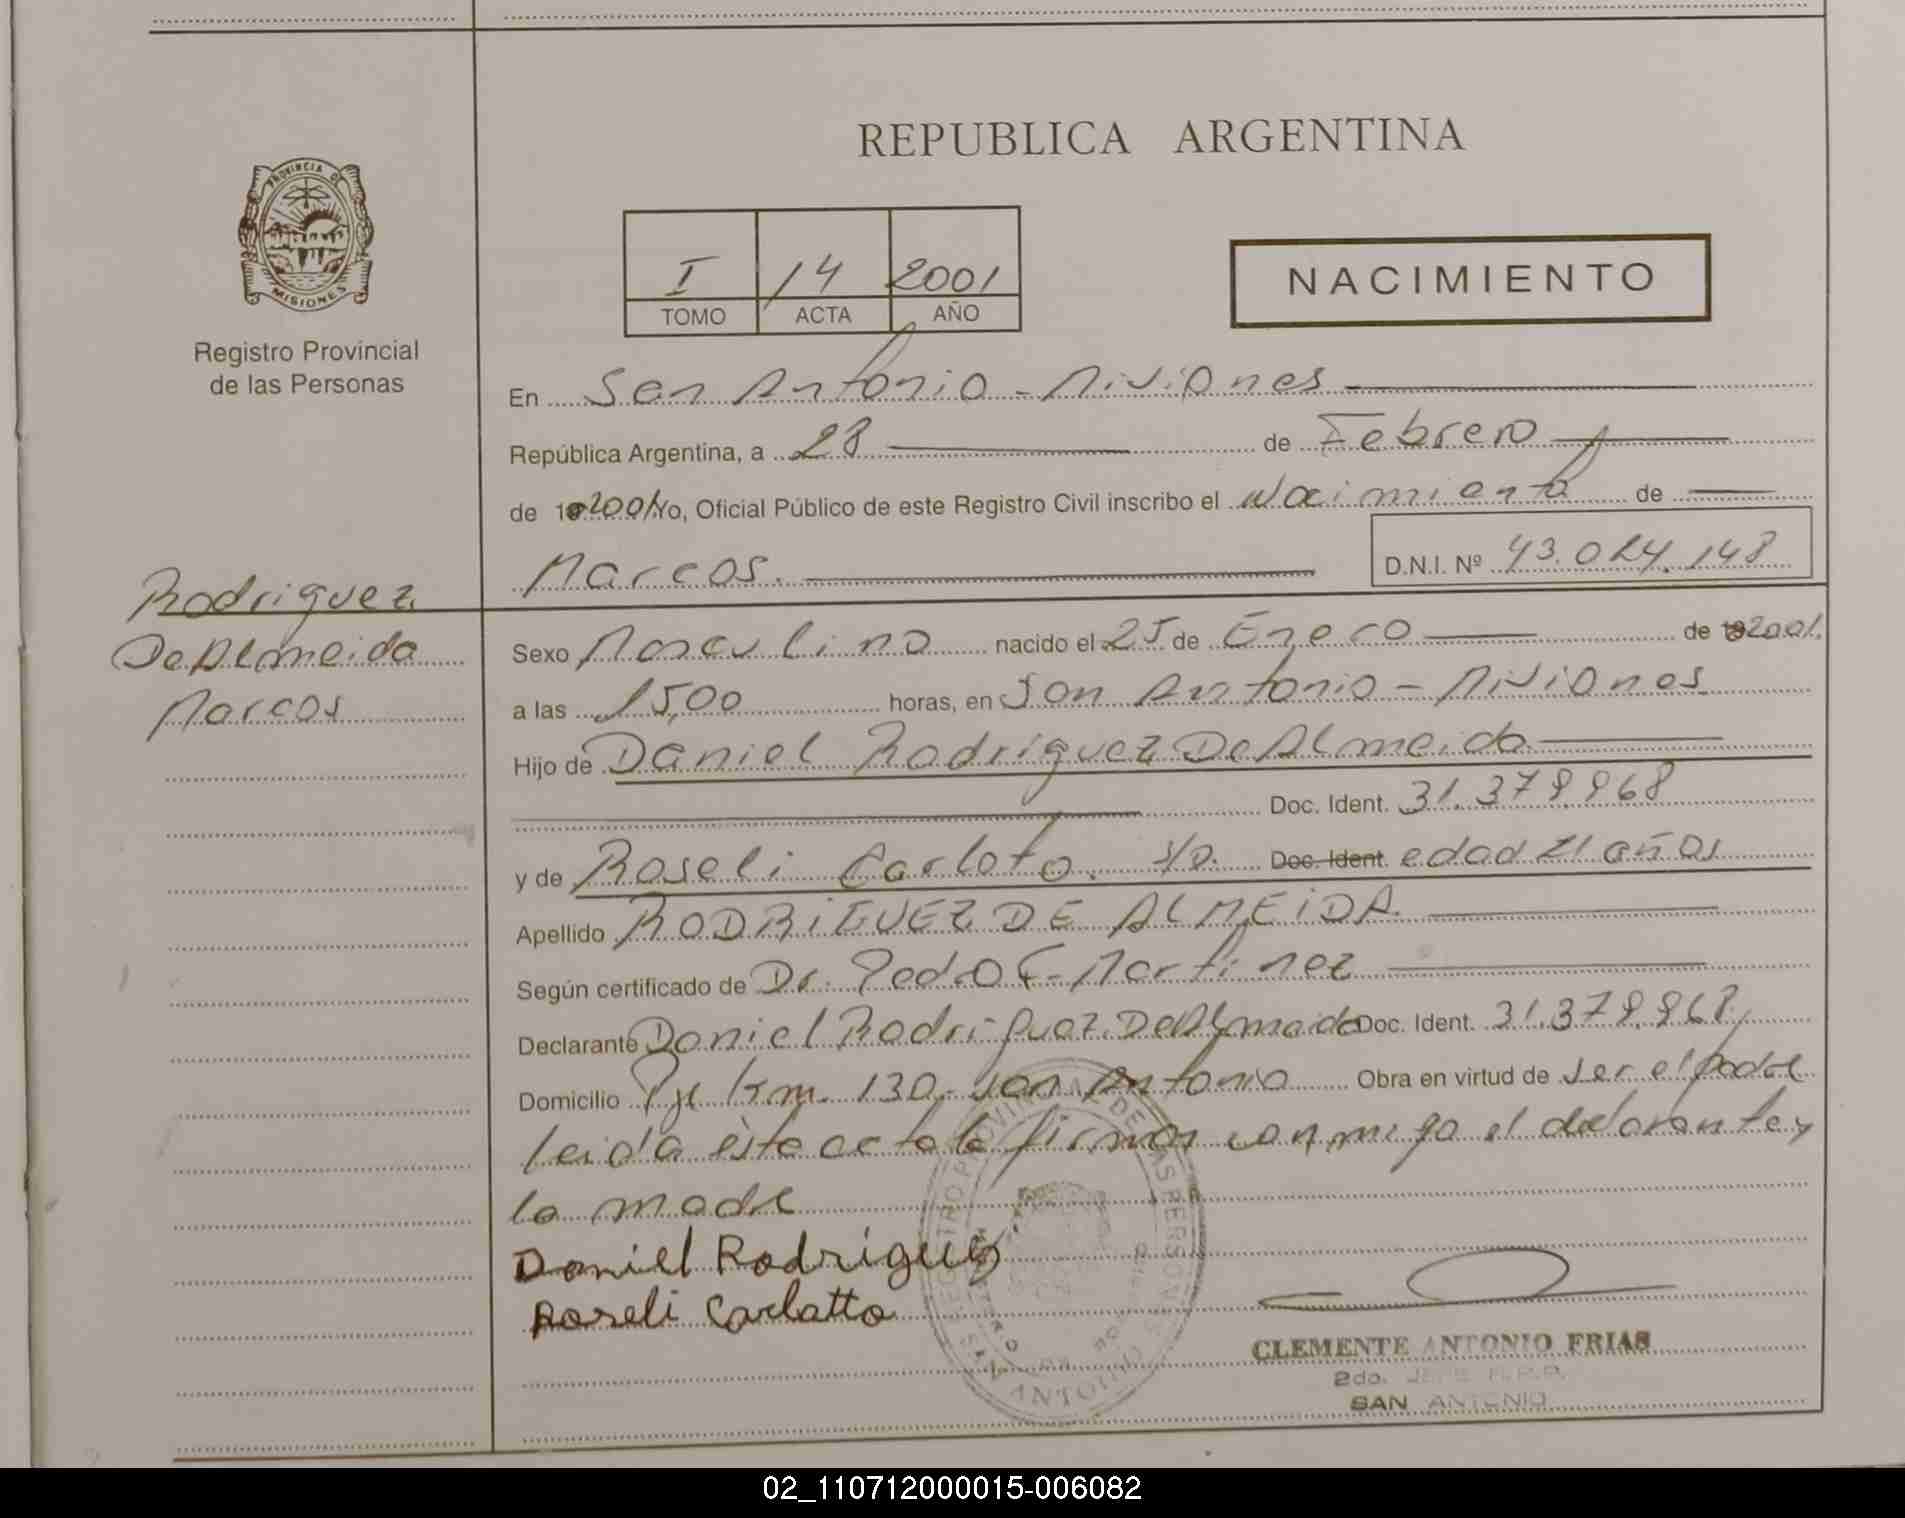 REPUBLICA ARGENTINA
PROVINCIA DE
MISIONES
Registro Provincial
de las Personas
I 14 2001
TOMO ACTA AÑO
NACIMIENTO
En San Antonio - Misiones
República Argentina, a 28 de Febrero
de 2001 Yo, Oficial Público de este Registro Civil inscribo el Nacimiento de
Marcos. D.N.I. Nº 43.024.148
Rodriguez
De Almeida
Marcos
Sexo Masculino nacido el 25 de Enero de 2001.
a las 15,00 horas, en San Antonio - Misiones
Hijo de Daniel Rodriguez De Almeida
Doc. Ident. 31.379.968
y de Roseli Carloto. s/D. Doc. Ident. edad 21 años
Apellido RODRIGUEZ DE ALMEIDA.
Según certificado de Dr. Pedro F. Martinez
Declarante Daniel Rodriguez De Almeida Doc. Ident. 31.379.968
Domicilio Pje Km. 130 - San Antonio Obra en virtud de ser el padre
leida éste acta la firman conmigo el declarante y
la madre
Daniel Rodriguez
Roseli Carlatto
CLEMENTE ANTONIO FRIAS
2do. JEFE R.P.P.
SAN ANTONIO
REGISTRO PROVINCIAL DE LAS PERSONAS
SAN ANTONIO
02_110712000015-006082